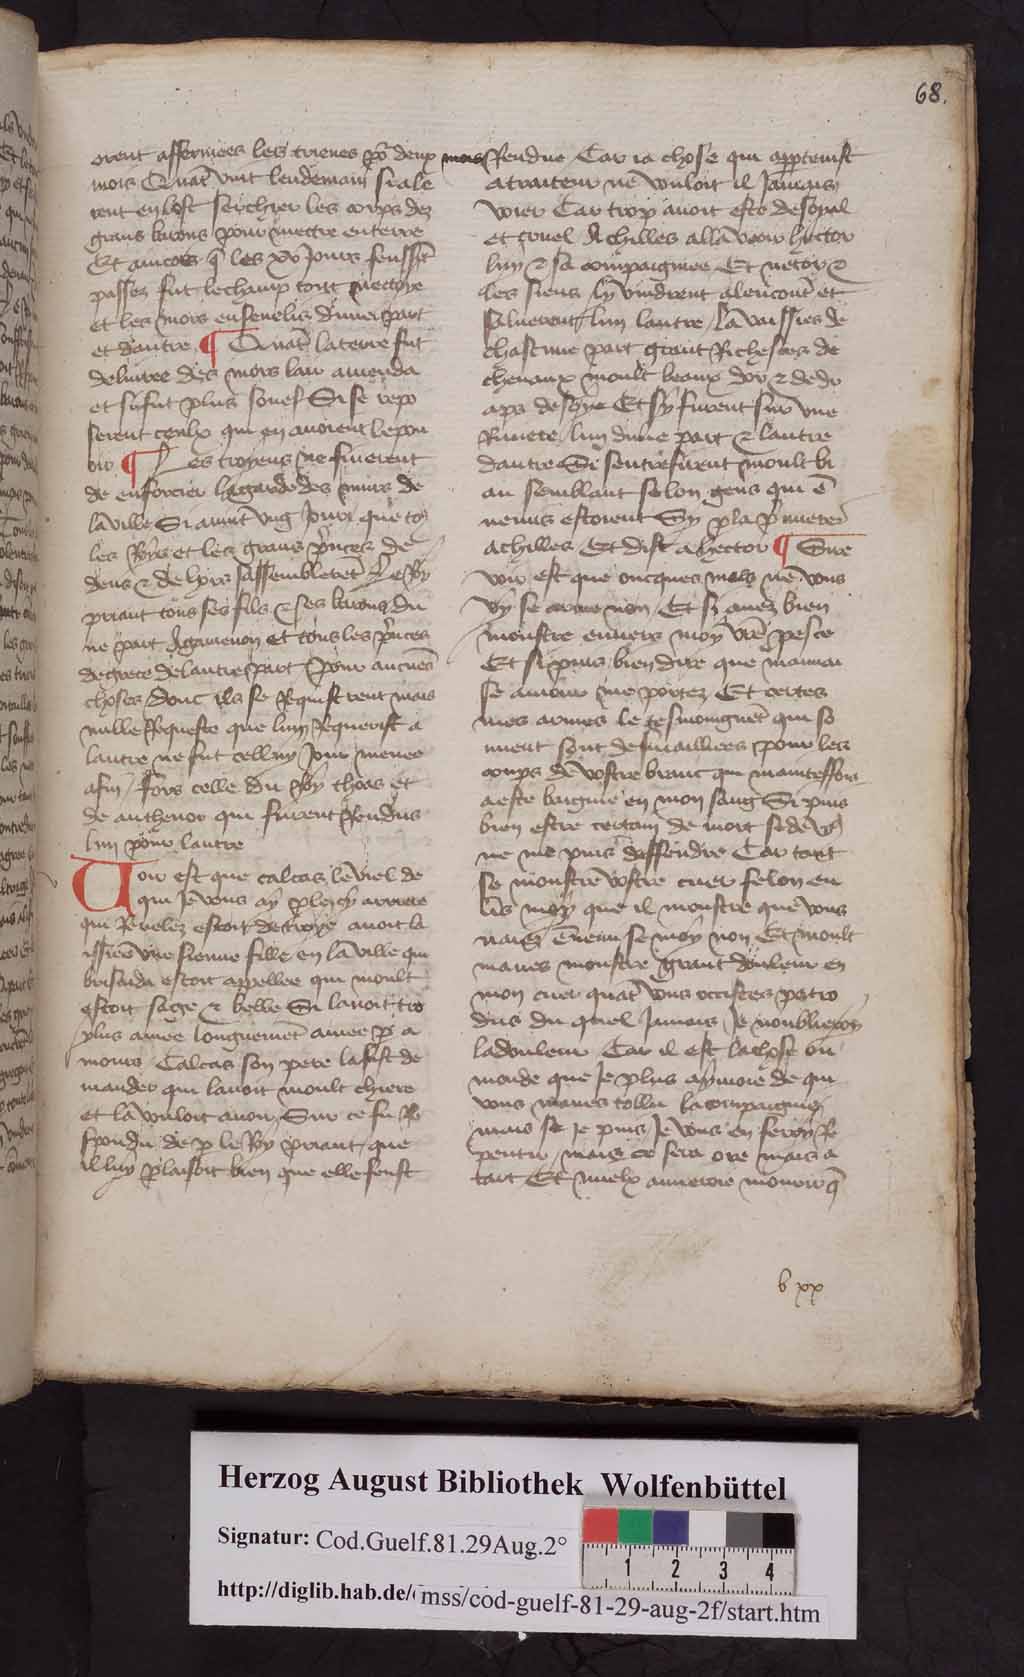 68.
orent affermees les trieues po deux mois
mois Quāt vint lendemain si ale
rent en lost serchier les corps dez
grans barons pour mectre en terre
Et aincois q̄ les xv Jours feussēt
passez fut le champ tout nectoye
et les mors enseuelis dune part
et dautre ¶ Quāt la terre fut
deliuree des mors lair amenda
et si fut plus souef Si se repo
serent ceulx qui en auoient le pou
oir ¶ Les troyens ne finerent
de enforcier la garde des murs de
la ville Si auint vng Jour que to
les Roys et les grans p̄nces de
dens & de hors sassemblerēt Le Roy
priant tous ses fils & ses barons du
ne part Agamenon et tous les p̄nces
de grece de lautre part pour aucūes
choses donc ilz se Requistrent mais
nulle Requeste que lun Requerist a
lautre ne fut celluy Jour menee
a fin fors celle du Roy thoas et
de anthenor qui furent Rendus
lun pour lautre
Voir est que calcas le viel de
qui Je vous ay ple cy arriere
qui Reuelez estoit de troye auoit la
issiee vne sienne fille en la ville qui
briseida estoit appellee qui moult
estoit saige & belle Si lauoit tro
ylus amee longuemēt amee p a
mours Calcas son pere la fist de
mander qui lauoit moult chiere
et la vouloit auoir Sur ce fu Re
spondu de p le Roy priant que
il luy plaisoit bien que elle feust
Rendue Car ia chose qui appteinst
a traiteur ne vouloit il Jamais
veoir Car trop auoit este desloyal
et cruel Achilles alla veoir hector
luy & sa compaignie Et hector &
les siens ly vindrent alencontre et
saluerent lun lautre La vaissies de
chascune part grant Richesces de
cheuaux moult beaux dor & de dr
aps de soye Et sy furent sur vne
Riuiere lun dune part & lautre
dautre Si sentrefirent moult bi
au semblant selon gens qui ē
nemis estoient Sy pla p̄mierer
achilles Et dist a hector ¶ Sire
voir est que oncques mais ne vous
vy se arme non Et si auez bien
monstre enuers moy vr̄e pesce
Et si puis bien dire que mauuai
se amour me portez Et certes
mes armes le tesmoingnēt qui so
uuent sont desmaillees pour les
coups de vostre branc qui maintesfois
a este baignie en mon sang Si puis
bien estre certain de mort se de v
ne me puis deffendre Car tant
se monstre vostre cuer felon en
vers moy que il monstre que vous
naiez ēnemi se moy non Et moult
maues monstre grant douleur en
mon cuer quāt vous occistes patro
clus du quel Jamais Je noublieray
la douleur Car il est la chose ou
monde que Je plus aymoie de qui
vous maues tollu la compaignie
mais se Je puis Je vous en feroy Re
pentir mais ce sera ore mais a
tart Et mielx aimeroie mourir q̄
b xx
Herzog August Bibliothek Wolfenbüttel
Signatur: Cod.Guelf.81.29Aug.2°
http://diglib.hab.de/ mss/cod-guelf-81-29-aug-2f/start.htm
1 2 3 4